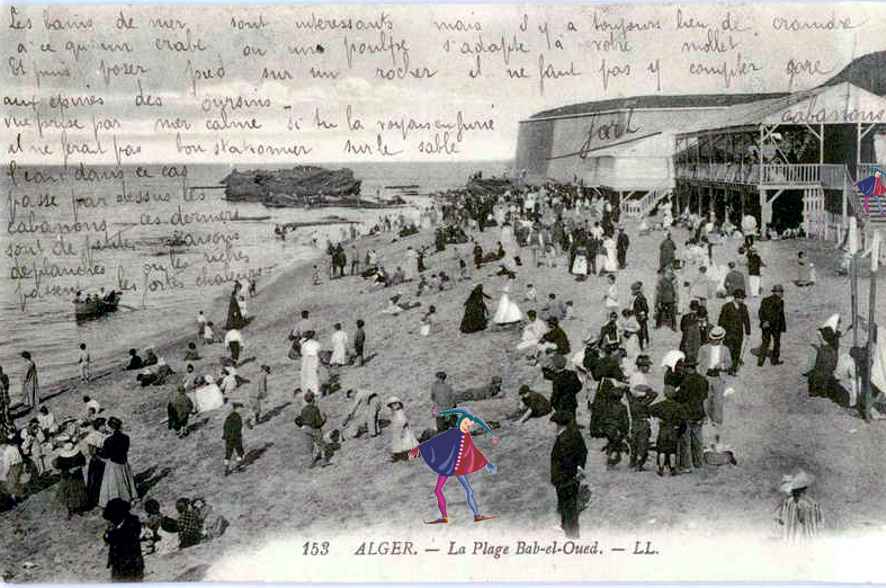 Les bains de mer sont interessants mais il y a toujours lieu de craindre
à ce qu'un crabe ou une poulpe s'adapte à votre mollet
Et puis poser pied sur un rocher il ne faut pas y compter gare
aux epines des oursins
vue prise par mer calme Si tu la voyais en furie
il ne ferait pas bon stationner sur le sable
l'eau dans ce cas
passe par dessus les
cabanons ces derniers
sont de petites maisons
de planches où les riches
passent les fortes chaleurs
fort
cabanons
153 ALGER. — La Plage Bab-el-Oued. — LL.